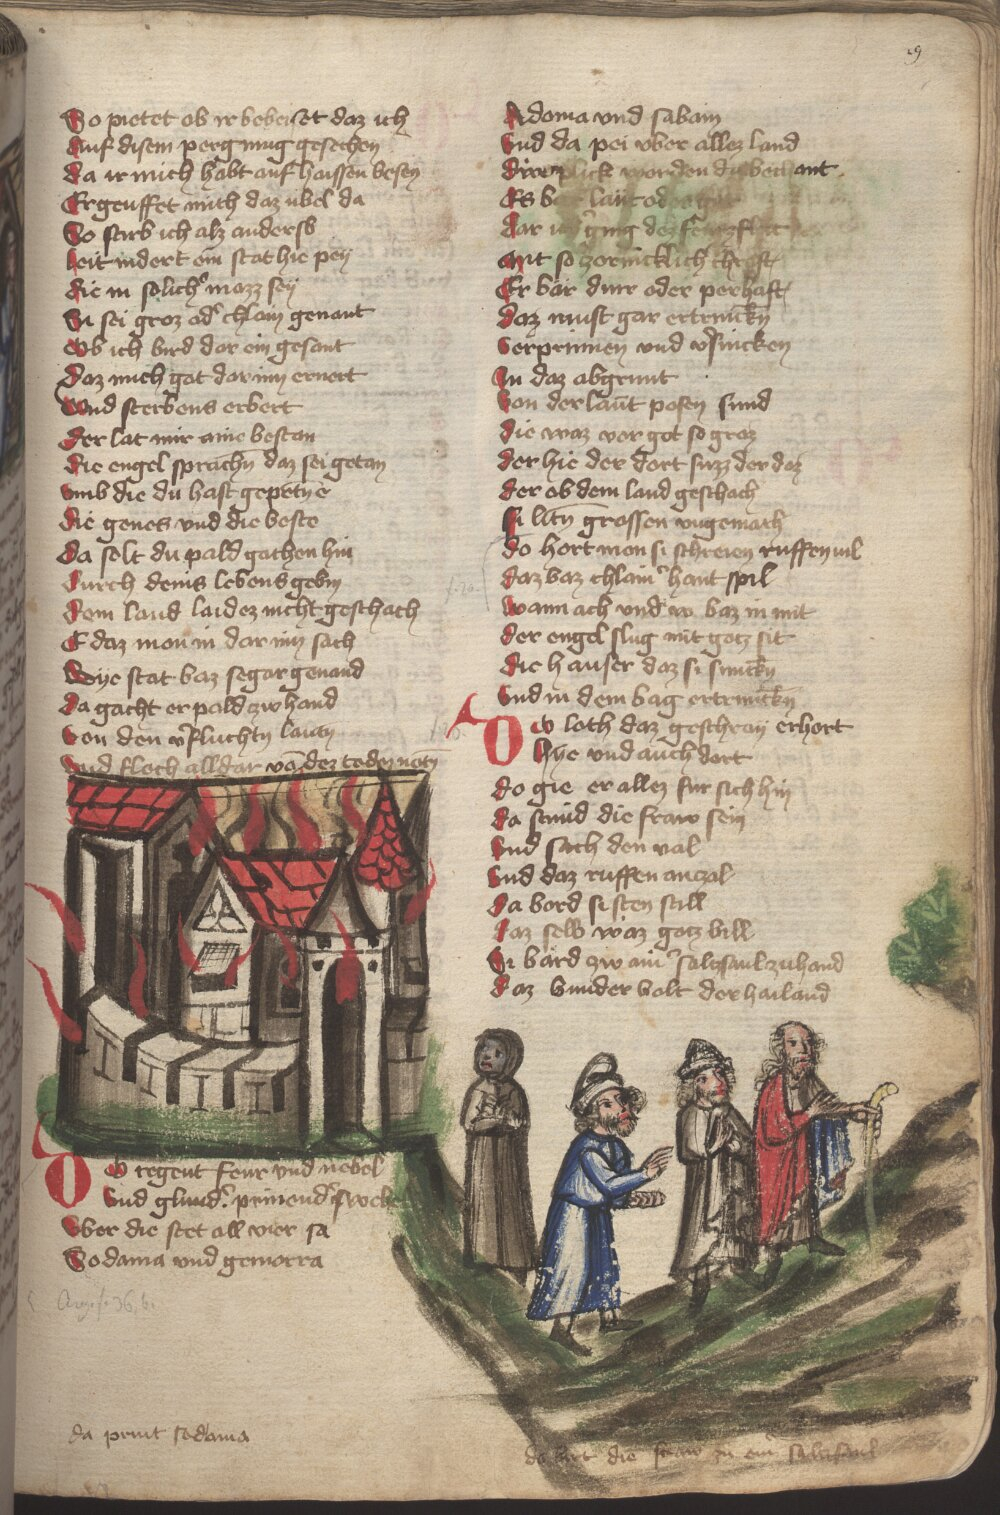 So pietet ob ir bebeiset daz ich
Auf disem perg mug geschen
da ir mich habt auf haissen besen
Ergeuffet mich daz ubel da
So stirb ich alz andersb
leit indert ein stat hie pey
die in solicher mazz sey
Si sei groz oder chlain genant
Ob ich bird dar ein gesant
Daz mich got dar inn ernert
Und sterbens erbert
der lat mir aine bestan
die engel sprachn daz sei getan
umb die du hast gepeten e
die genes und die beste
Da solt du pald gachen hin
durch deins lebens gebin
dem land laidez nicht geschach
E daz man in dar inn sach
Dye stat baz segor genand
Da gacht er pald zwhand
von den verfluchtn lautn
und floch alldar von dez todez noten
Do regent feur und nebel
und glund prinnender swebel
vber die stet all vier sa
Sodama und gemorra
Ausg. s. 36, b.
da print sodama
29
Adoma und sabaim
und da pei vber allez land
die
Es bar laut oder
dar in ging dez
mit so zornicklich chraft
Er bar durr oder perhaft
daz must gar ertrincken
verprinnen und versincken
In daz abgrunt
von der laut posen sund
die waz vor got so groz
der hie der dort suzz der doz
der ob dem land geschach
si liten grossen ungemach
do hort man si schreien ruffen vil
daz baz chlainer hant spil
wann ach und w baz in mit
der engel slug mit gotz sit
die hauser daz si suncken
und in dem bag ertruncken
Do loth daz geschray erhort
hye und auch dort
do gie er allez fur sich hin
da stund die fraw sein
und sach den val
und daz ruffen an zal
da bard si sten still
daz selb waz gotz bill
Si bard zw ainer saltzsaul zuhand
daz bunder bolt der hailand
da wirt die fraw zu einer saltzsaul